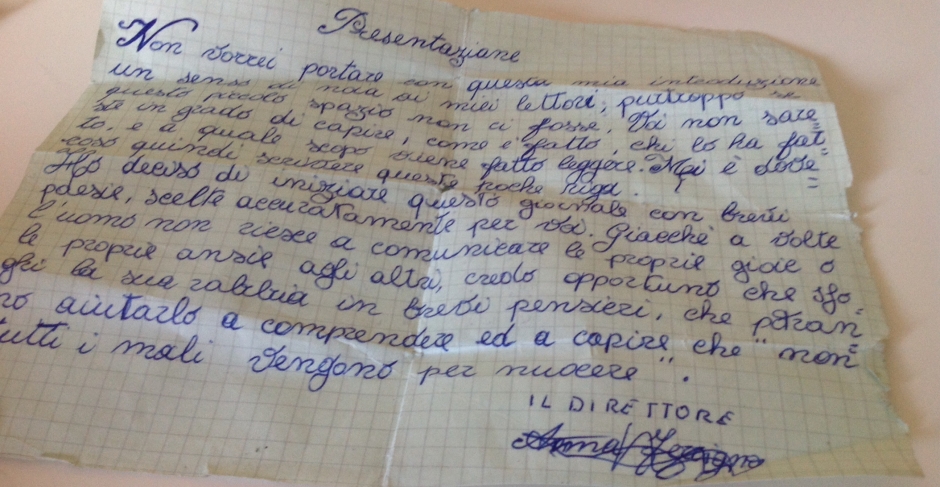 Presentazione
Non vorrei portare con questa mia introduzione
un senso di noia ai miei lettori; purtroppo se
questo piccolo spazio non ci fosse, Voi non sare=
ste in grado di capire, come è fatto, chi lo ha fat=
to, e a quale scopo viene fatto leggere. Mi è dove=
roso quindi scrivere queste poche righe.
Ho deciso di iniziare questo giornale con brevi
poesie, scelte accuratamente per Voi. Giacché a volte
l'uomo non riesce a comunicare le proprie gioie o
le proprie ansie agli altri, credo opportuno che sfo=
ghi la sua rabbia in brevi pensieri, che potran=
no aiutarlo a comprendere ed a capire che "non
tutti i mali vengono per nuocere".
IL DIRETTORE
Anna